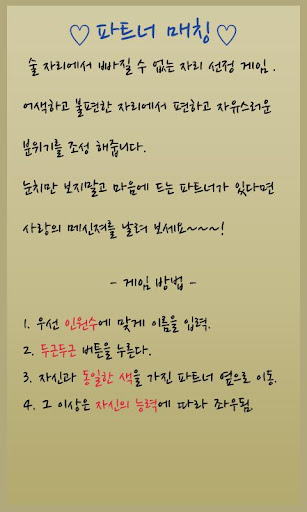 ♡ 파트너 매칭 ♡
술 자리에서 빠질 수 없는 자리 선정 게임.
어색하고 불편한 자리에서 편하고 자유스러운
분위기를 조성 해줍니다.
눈치만 보지말고 마음에 드는 파트너가 있다면
사랑의 메신져를 날려 보세요~~~!
- 게임 방법 -
1. 우선 인원수에 맞게 이름을 입력.
2. 두근두근 버튼을 누른다.
3. 자신과 동일한 색을 가진 파트너 옆으로 이동.
4. 그 이상은 자신의 능력에 따라 좌우됨.